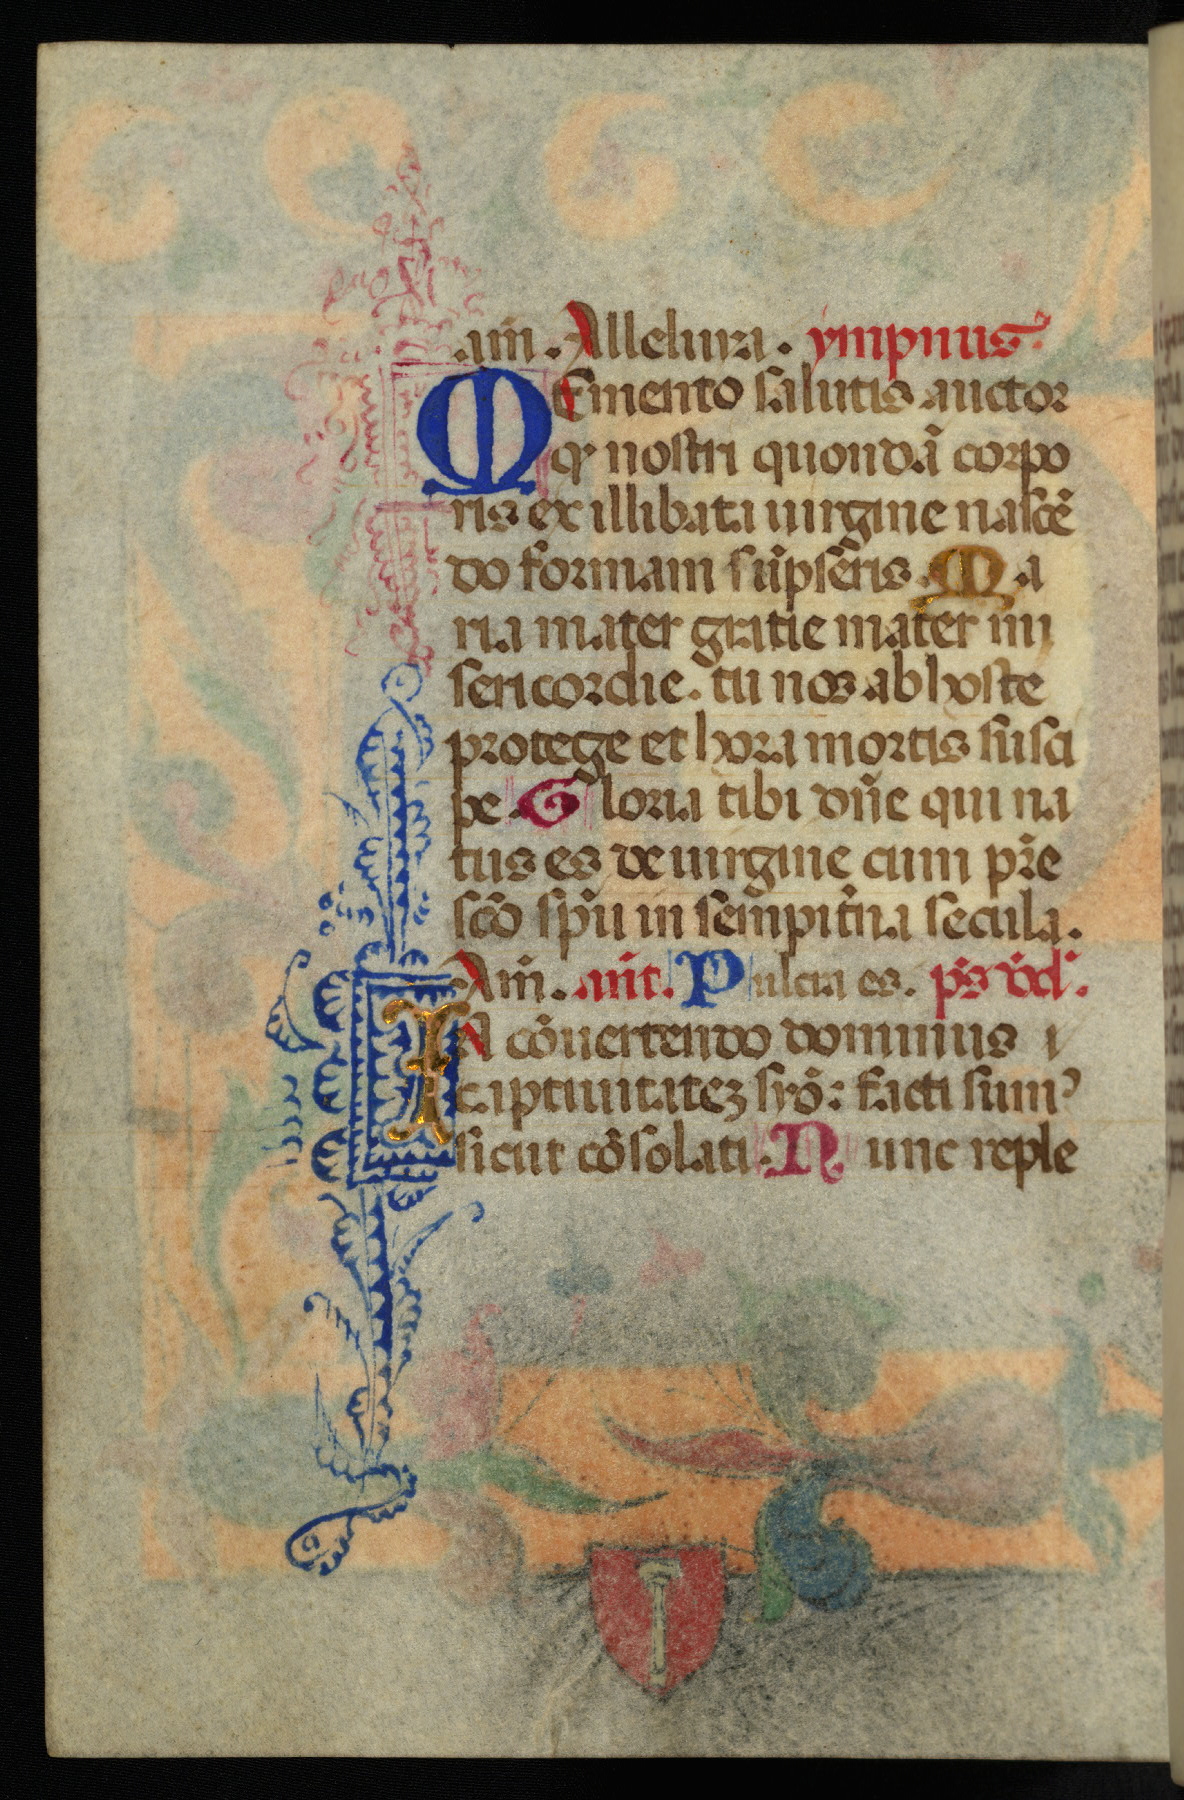 am̄. Alleluya. ympnus.
MEmento salutis auctor
q̄ nostri quondā corpo
ris ex illibata uirgine nascē
do formam sūpseris. Ma
ria mater gratie mater mi
sericordie. tu nos ab hoste
protege et hora mortis susci
pe. Gloria tibi dn̄e qui na
tus es de uirgine cum pr̄e
scō sp̄u in sempit̄na secula.
Am̄. an̄t. Pulcra es. ps̄ dd̄.
IN cōuertendo dominus
captiuitatez syō: facti sumꝰ
sicut cōsolati. Nunc reple